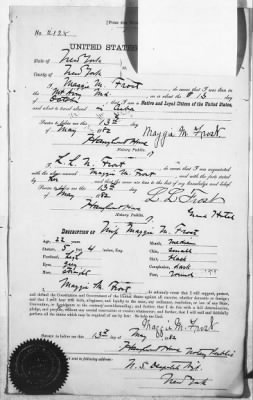 No. 2128
UNITED STATES
State of New York
County of New York
I, Maggie M. Frost, do swear that I was born in
on or about the 13 day of
October, that I am a Native and Loyal Citizen of the United States,
and about to travel abroad in Cuba
Sworn to before me this 13th
day of May 1862
Maggie M. Frost
Notary Public.
I, L. L. Frost, do swear that I am acquainted
with the above named Maggie M. Frost, and with the facts
stated by her, and that they are true to the best of my knowledge and belief.
Sworn to before me this 13th
day of May 1862
L. L. Frost
Notary Public.
DESCRIPTION OF Miss Maggie M. Frost
Age, 22 years
Stature, 5 feet 4 inches, Eng.
Forehead, high
Eyes, grey
Nose, straight
Mouth, medium
Chin, small
Hair, black
Complexion, dark
Face, round
I, Maggie M Frost, do solemnly swear that I will support, protect,
and defend the Constitution and Government of the United States against all enemies, whether domestic or foreign;
and that I will bear true faith, allegiance, and loyalty to the same, any ordinance, resolution, or law of any State
Convention, or Legislature to the contrary notwithstanding; and further, that I do this with a full determination,
pledge, and purpose, without any mental reservation or evasion whatsoever; and further, that I will well and faithfully
perform all the duties which may be required of me by law. So help me God.
Maggie M. Frost
Sworn to before me this 13th day of May 1862
Notary Public
New York